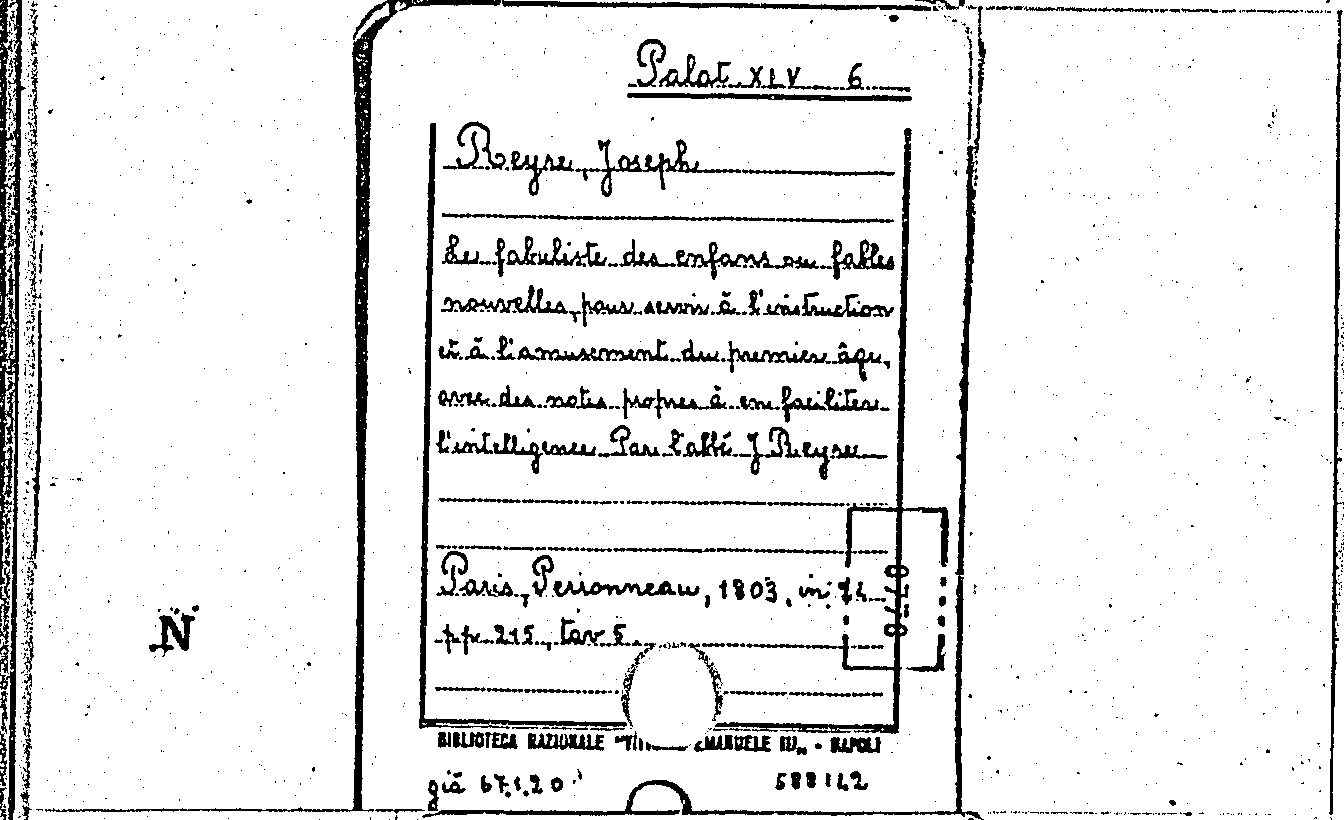 Palat. XLV 6
Reyre, Joseph
Le fabuliste des enfans ou fables
nouvelles, pour servir à l'instruction
et à l'amusement du premier âge,
avec des notes propres à en faciliter
l'intelligence Par l'abbé J Reyre
Paris, Perionneau, 1803, in
pp. 215, tav 5.
N
BIBLIOTECA NAZIONALE EMANUELE III„ - NAPOLI
già 67.1.20
588142